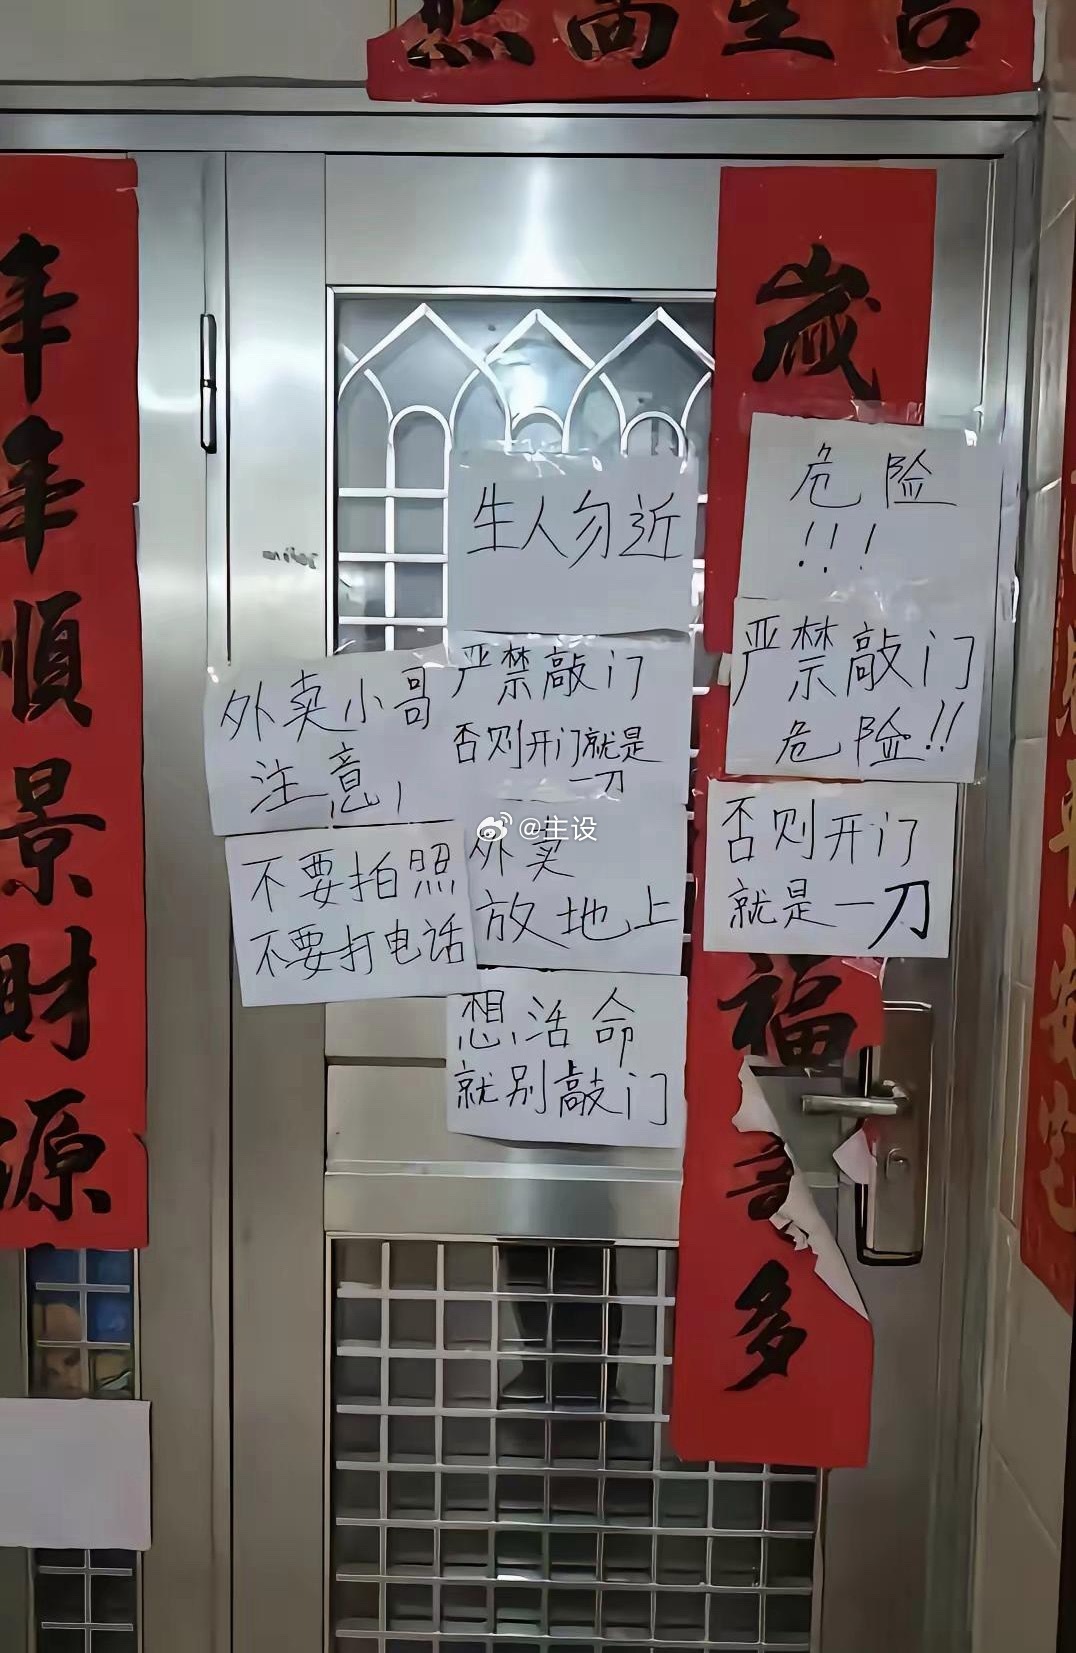 年年順景財源
歲
福
多
生人勿近
严禁敲门
否则开门就是
一刀
外卖
放地上
想活命
就别敲门
外卖小哥
注意!
不要拍照
不要打电话
危险
!!!
严禁敲门
危险!!
否则开门
就是一刀
@主设